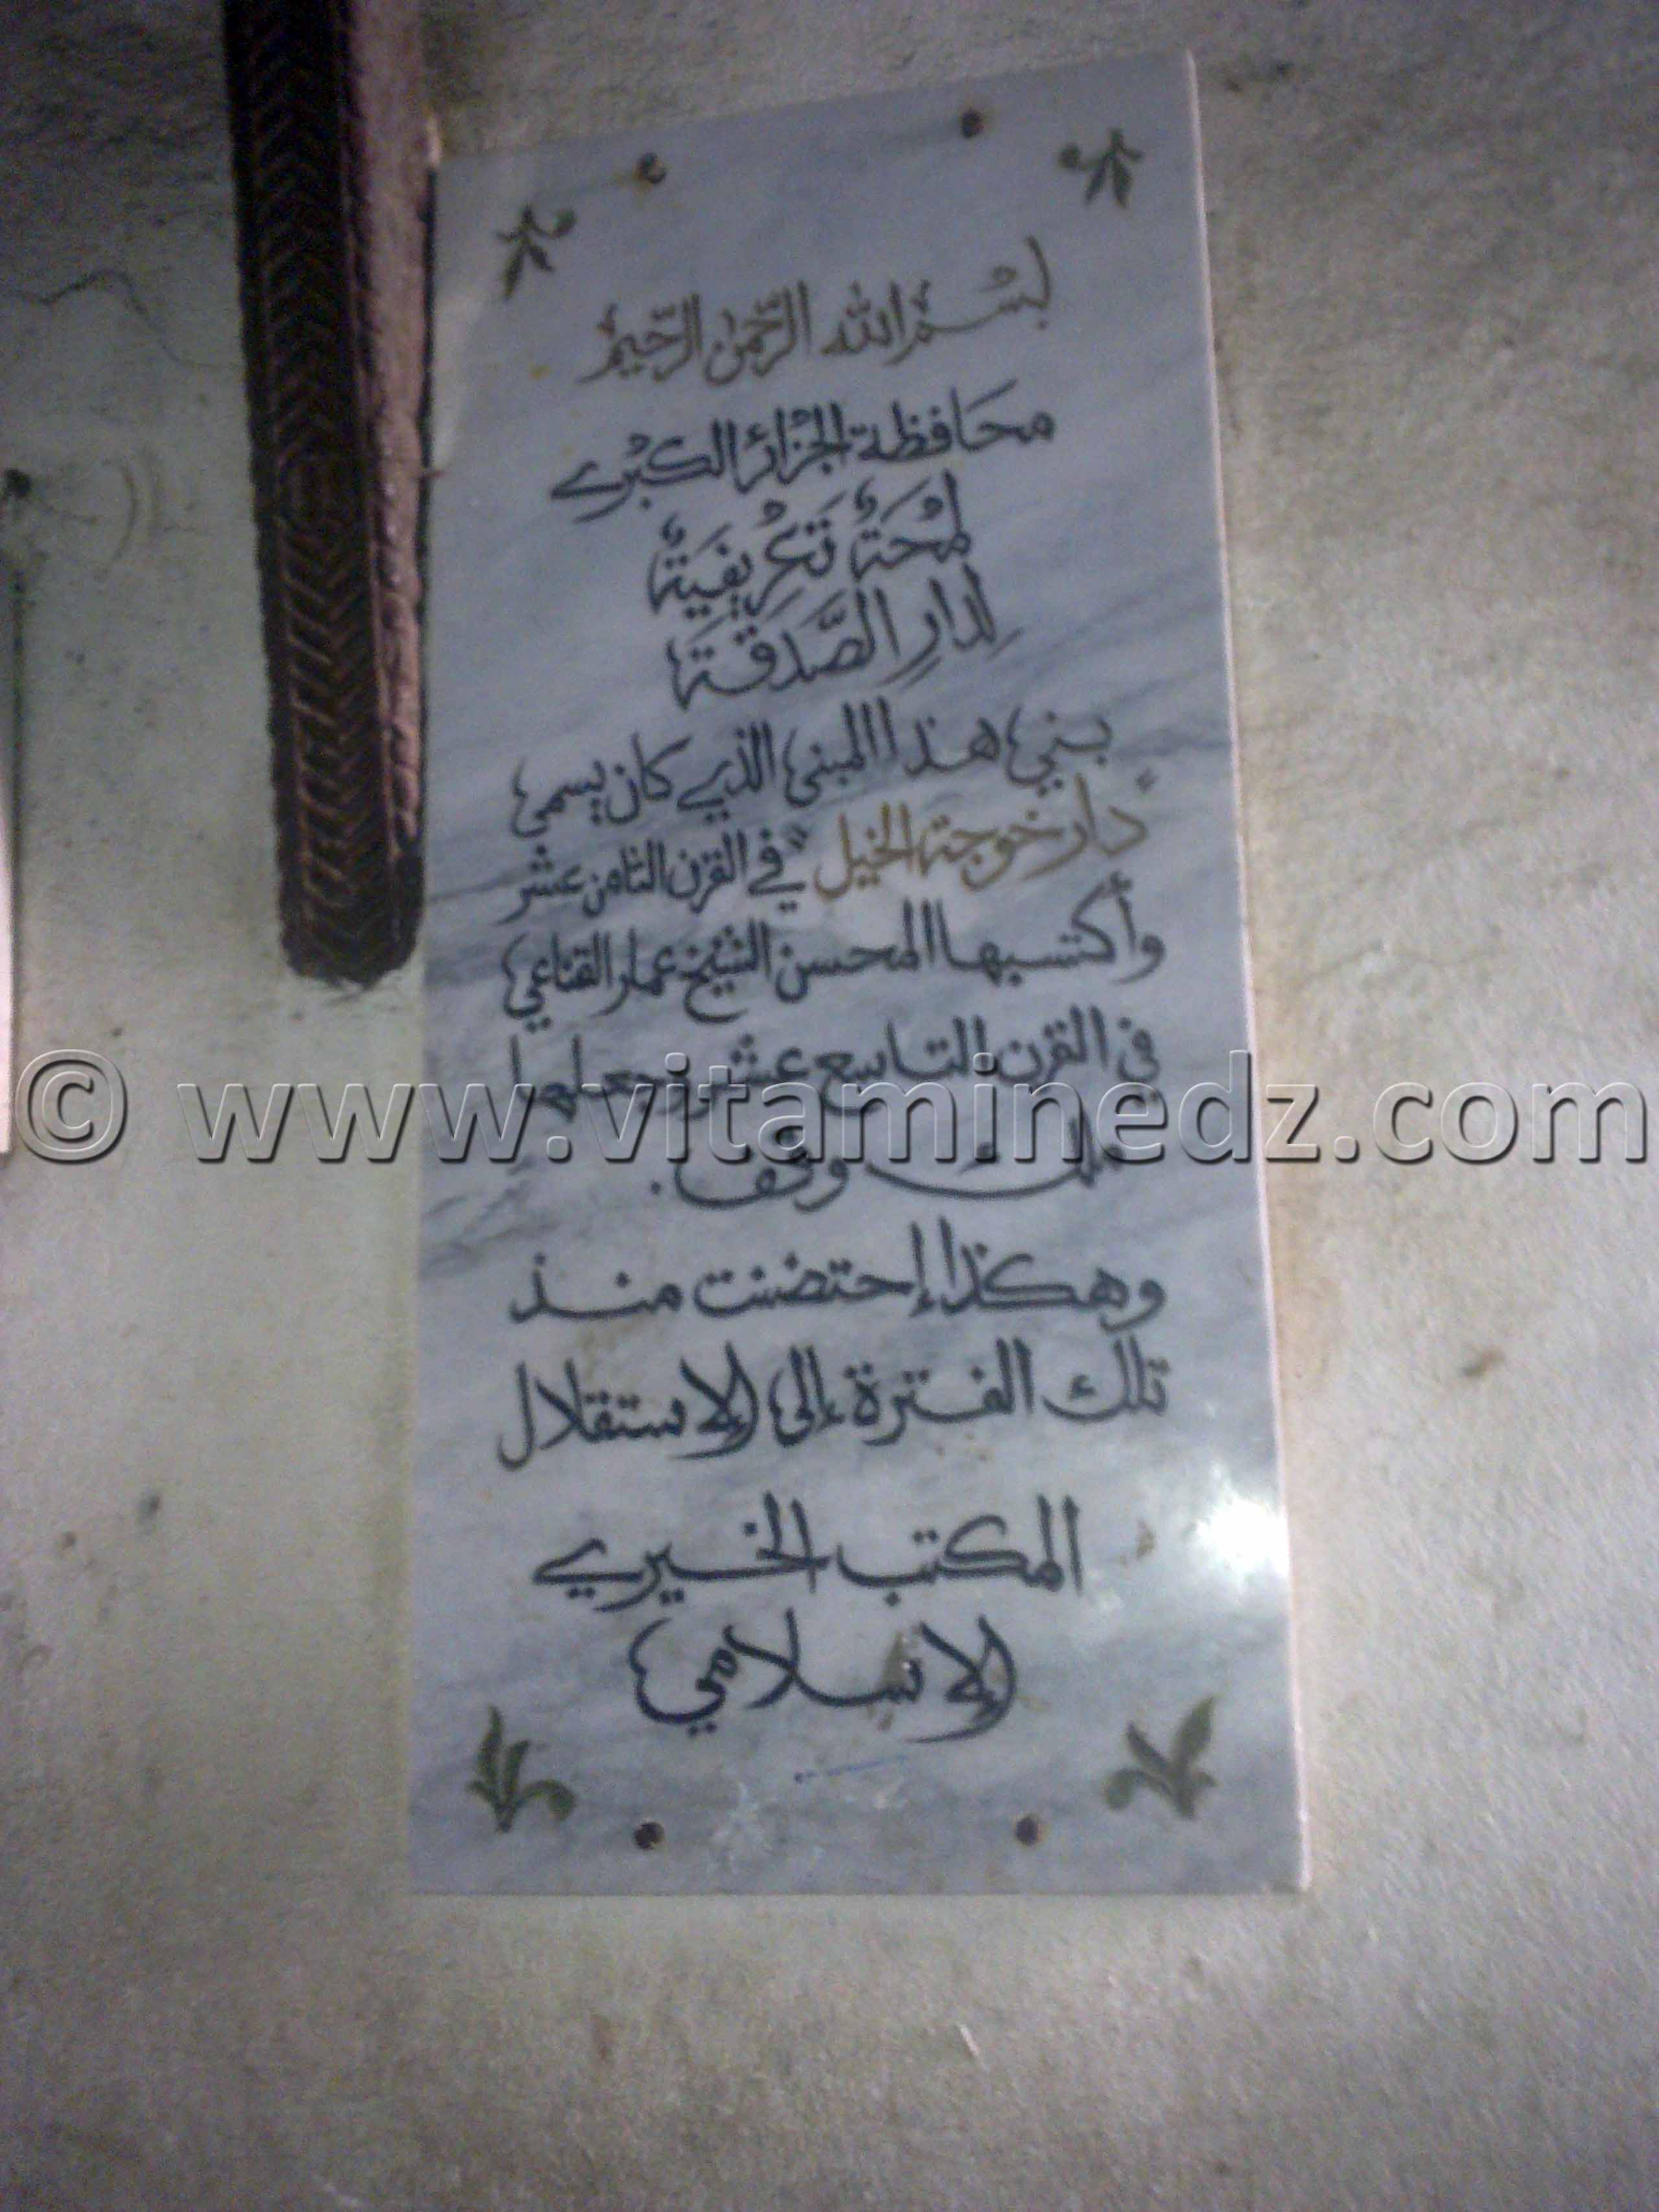 بسم الله الرحمن الرحيم
محَافظة الجزائر الكبرى
لمْحَةٌ تَعْرِيفِيَةٌ
لِدَارِ الصَّدَقَة
بني هذا المبنى الذي كان يسمى
"دار خوجة الخيل" في القرن الثامن عشر
وأكتسبها المحسن الشيخ عمار القناعي
في القرن التاسع عشر وجعلها
ملك وقف.
وهكذا إحتضنت منذ
تلك الفترة إلى الإستقلال
المكتب الخيري
الإسلامي
© www.vitaminedz.com